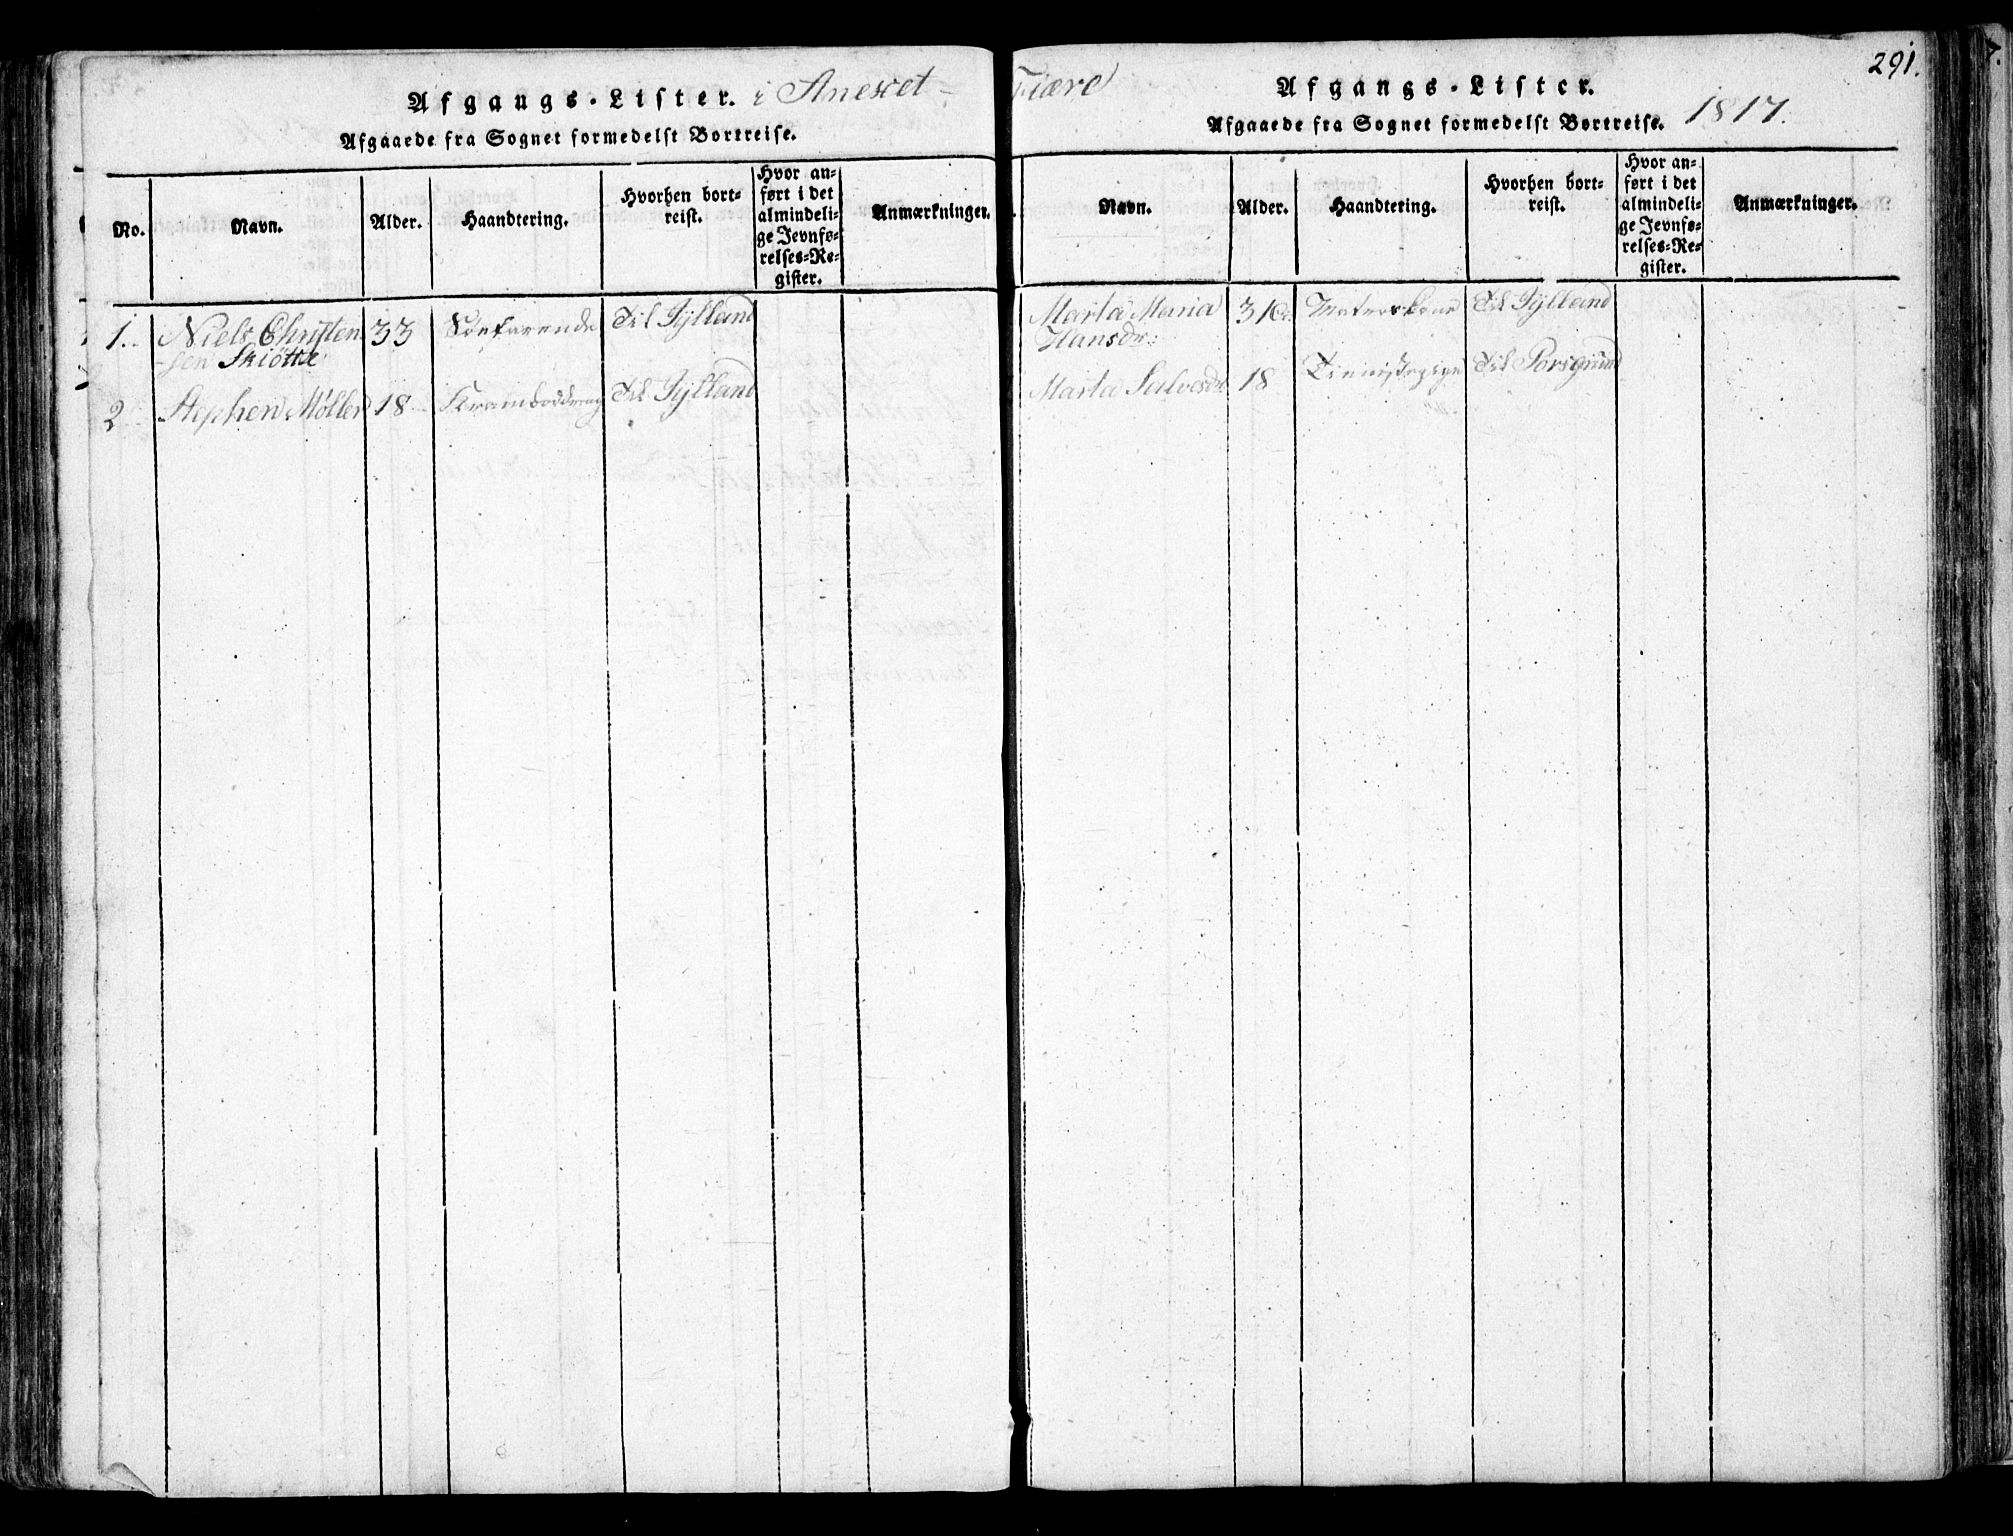 Afgangs-Lister. i Anexet -
Afgaaede fra Sognet formedelst Bortreise.
No.
Navn.
Alder.
Haandtering.
Hvorhen bort-
reist.
Hvor an-
ført i det
almindeli-
ge Jevnfø-
relses-Re-
gister.
Anmærkninger.
1. Niels Christen 33 Söefarende Til Jylland
-sen Skiötte
2 Stephen Møller 18 Til Jylland
Fiære
Afgangs-Lister.
291.
Afgaaede fra Sognet formedelst Bortreise. 1817.
Navn.
Alder.
Haandtering.
Hvorhen bort-
reist.
Hvor an-
ført i det
almindeli-
ge Jevnfø-
relses-Re-
gister.
Anmærkninger.
Marta Maria Matroskone Til Jylland
Hansdr:
Marta Salvesdr 18 Tienistepige Til Porsgrund